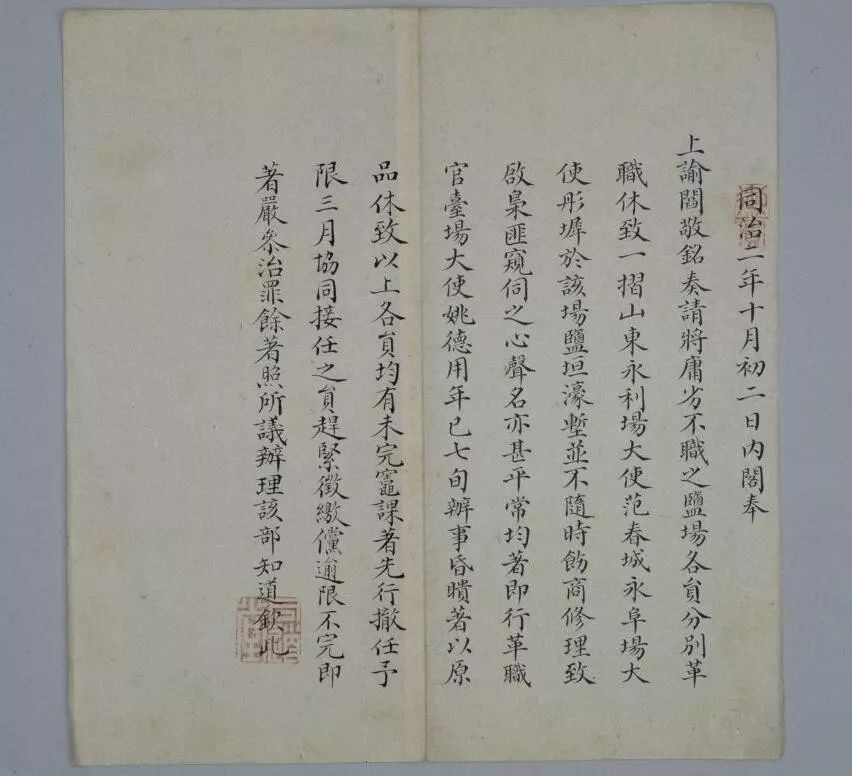 同治二年十月初二日內閣奉
上諭閻敬銘奏請將庸劣不職之鹽場各員分別革
職休致一摺山東永利場大使范春城永阜場大
使彤墀於該場鹽垣濠塹並不隨時飭商修理致
啟梟匪窺伺之心聲名亦甚平常均著即行革職
官臺場大使姚德用年已七旬辦事昏聵著以原
品休致以上各員均有未完竈課著先行撤任予
限三月協同接任之員趕緊徵繳儻逾限不完即
著嚴參治罪餘著照所議辦理該部知道欽此